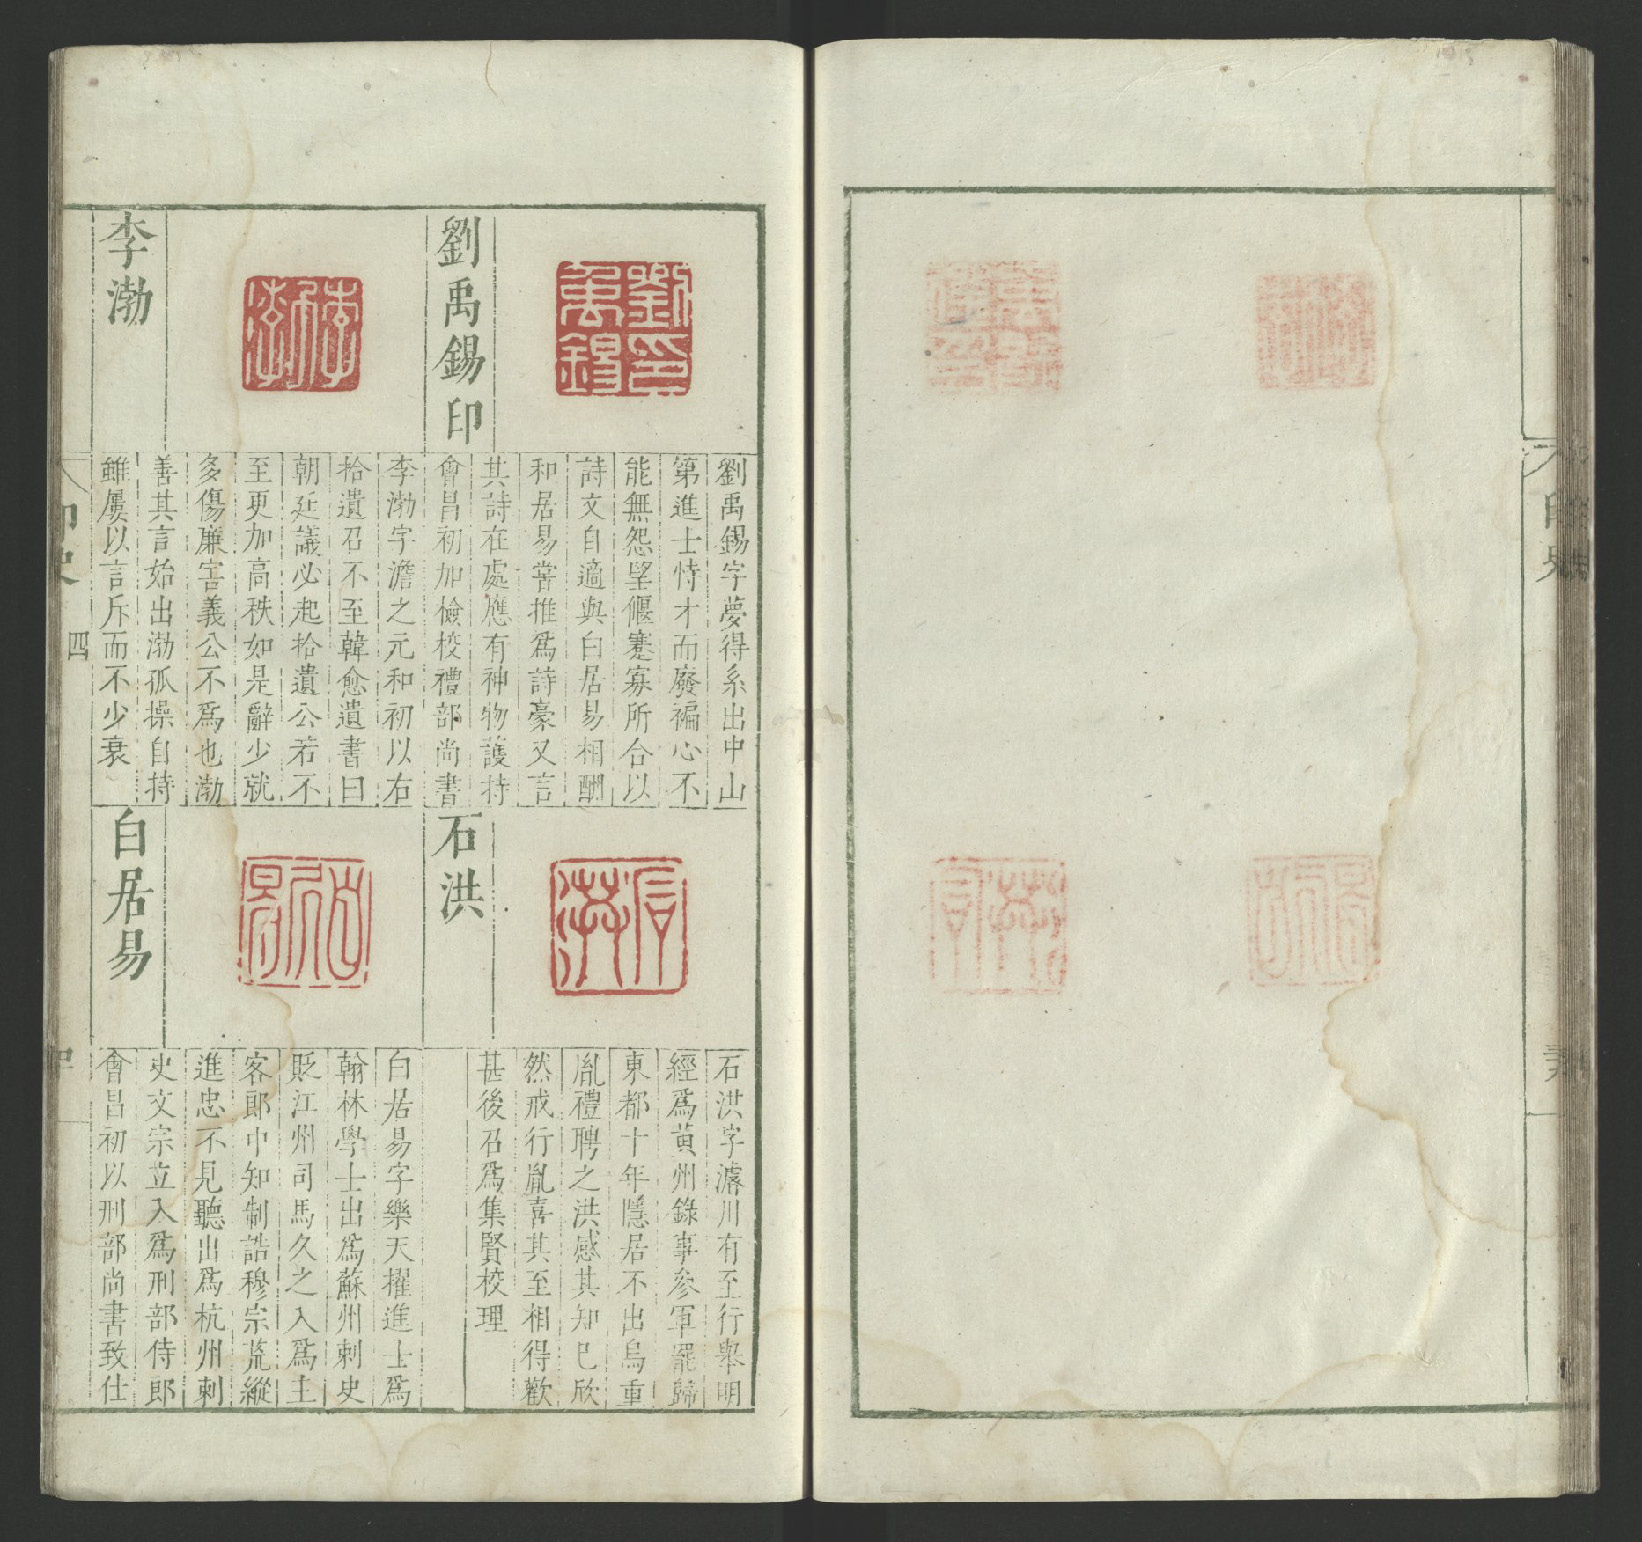 劉禹錫印
劉禹錫字夢得系出中山
第進士恃才而廢褊心不
能無怨望偃蹇寡所合以
詩文自適與白居易相酬
和居易嘗推爲詩豪又言
其詩在處應有神物護持
會昌初加檢校禮部尚書
李渤
李渤字澹之元和初以右
拾遺召不至韓愈遺書曰
朝廷議必起拾遺公若不
至更加高秩如是辭少就
多傷廉害義公不爲也渤
善其言始出渤孤操自持
雖屢以言斥而不少衰
石洪
石洪字濬川有至行舉明
經爲黃州錄事參軍罷歸
東都十年隱居不出烏重
胤禮聘之洪感其知已欣
然戒行胤喜其至相得歡
甚後召爲集賢校理
白居易
白居易字樂天擢進士爲
翰林學士出爲蘇州刺史
貶江州司馬久之入爲主
客郎中知制誥穆宗荒縱
進忠不見聽出爲杭州刺
史文宗立入爲刑部侍郎
會昌初以刑部尚書致仕
印史
四